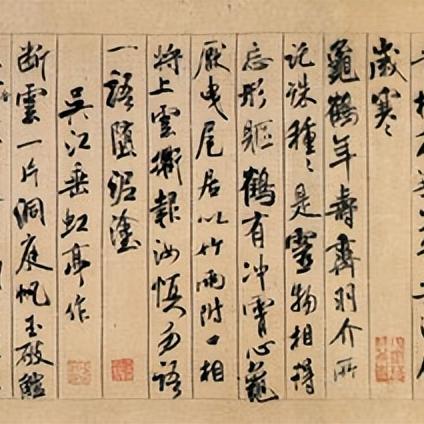 歲寒
龜鶴年壽齊羽介所
託殊種〻是靈物相得
忘形軀鶴有冲霄心龜
厭曳尾居以竹兩附口相
將上雲衢報汝慎勿語
一語墮泥塗
吳江垂虹亭作
断雲一片洞庭帆玉破鱸